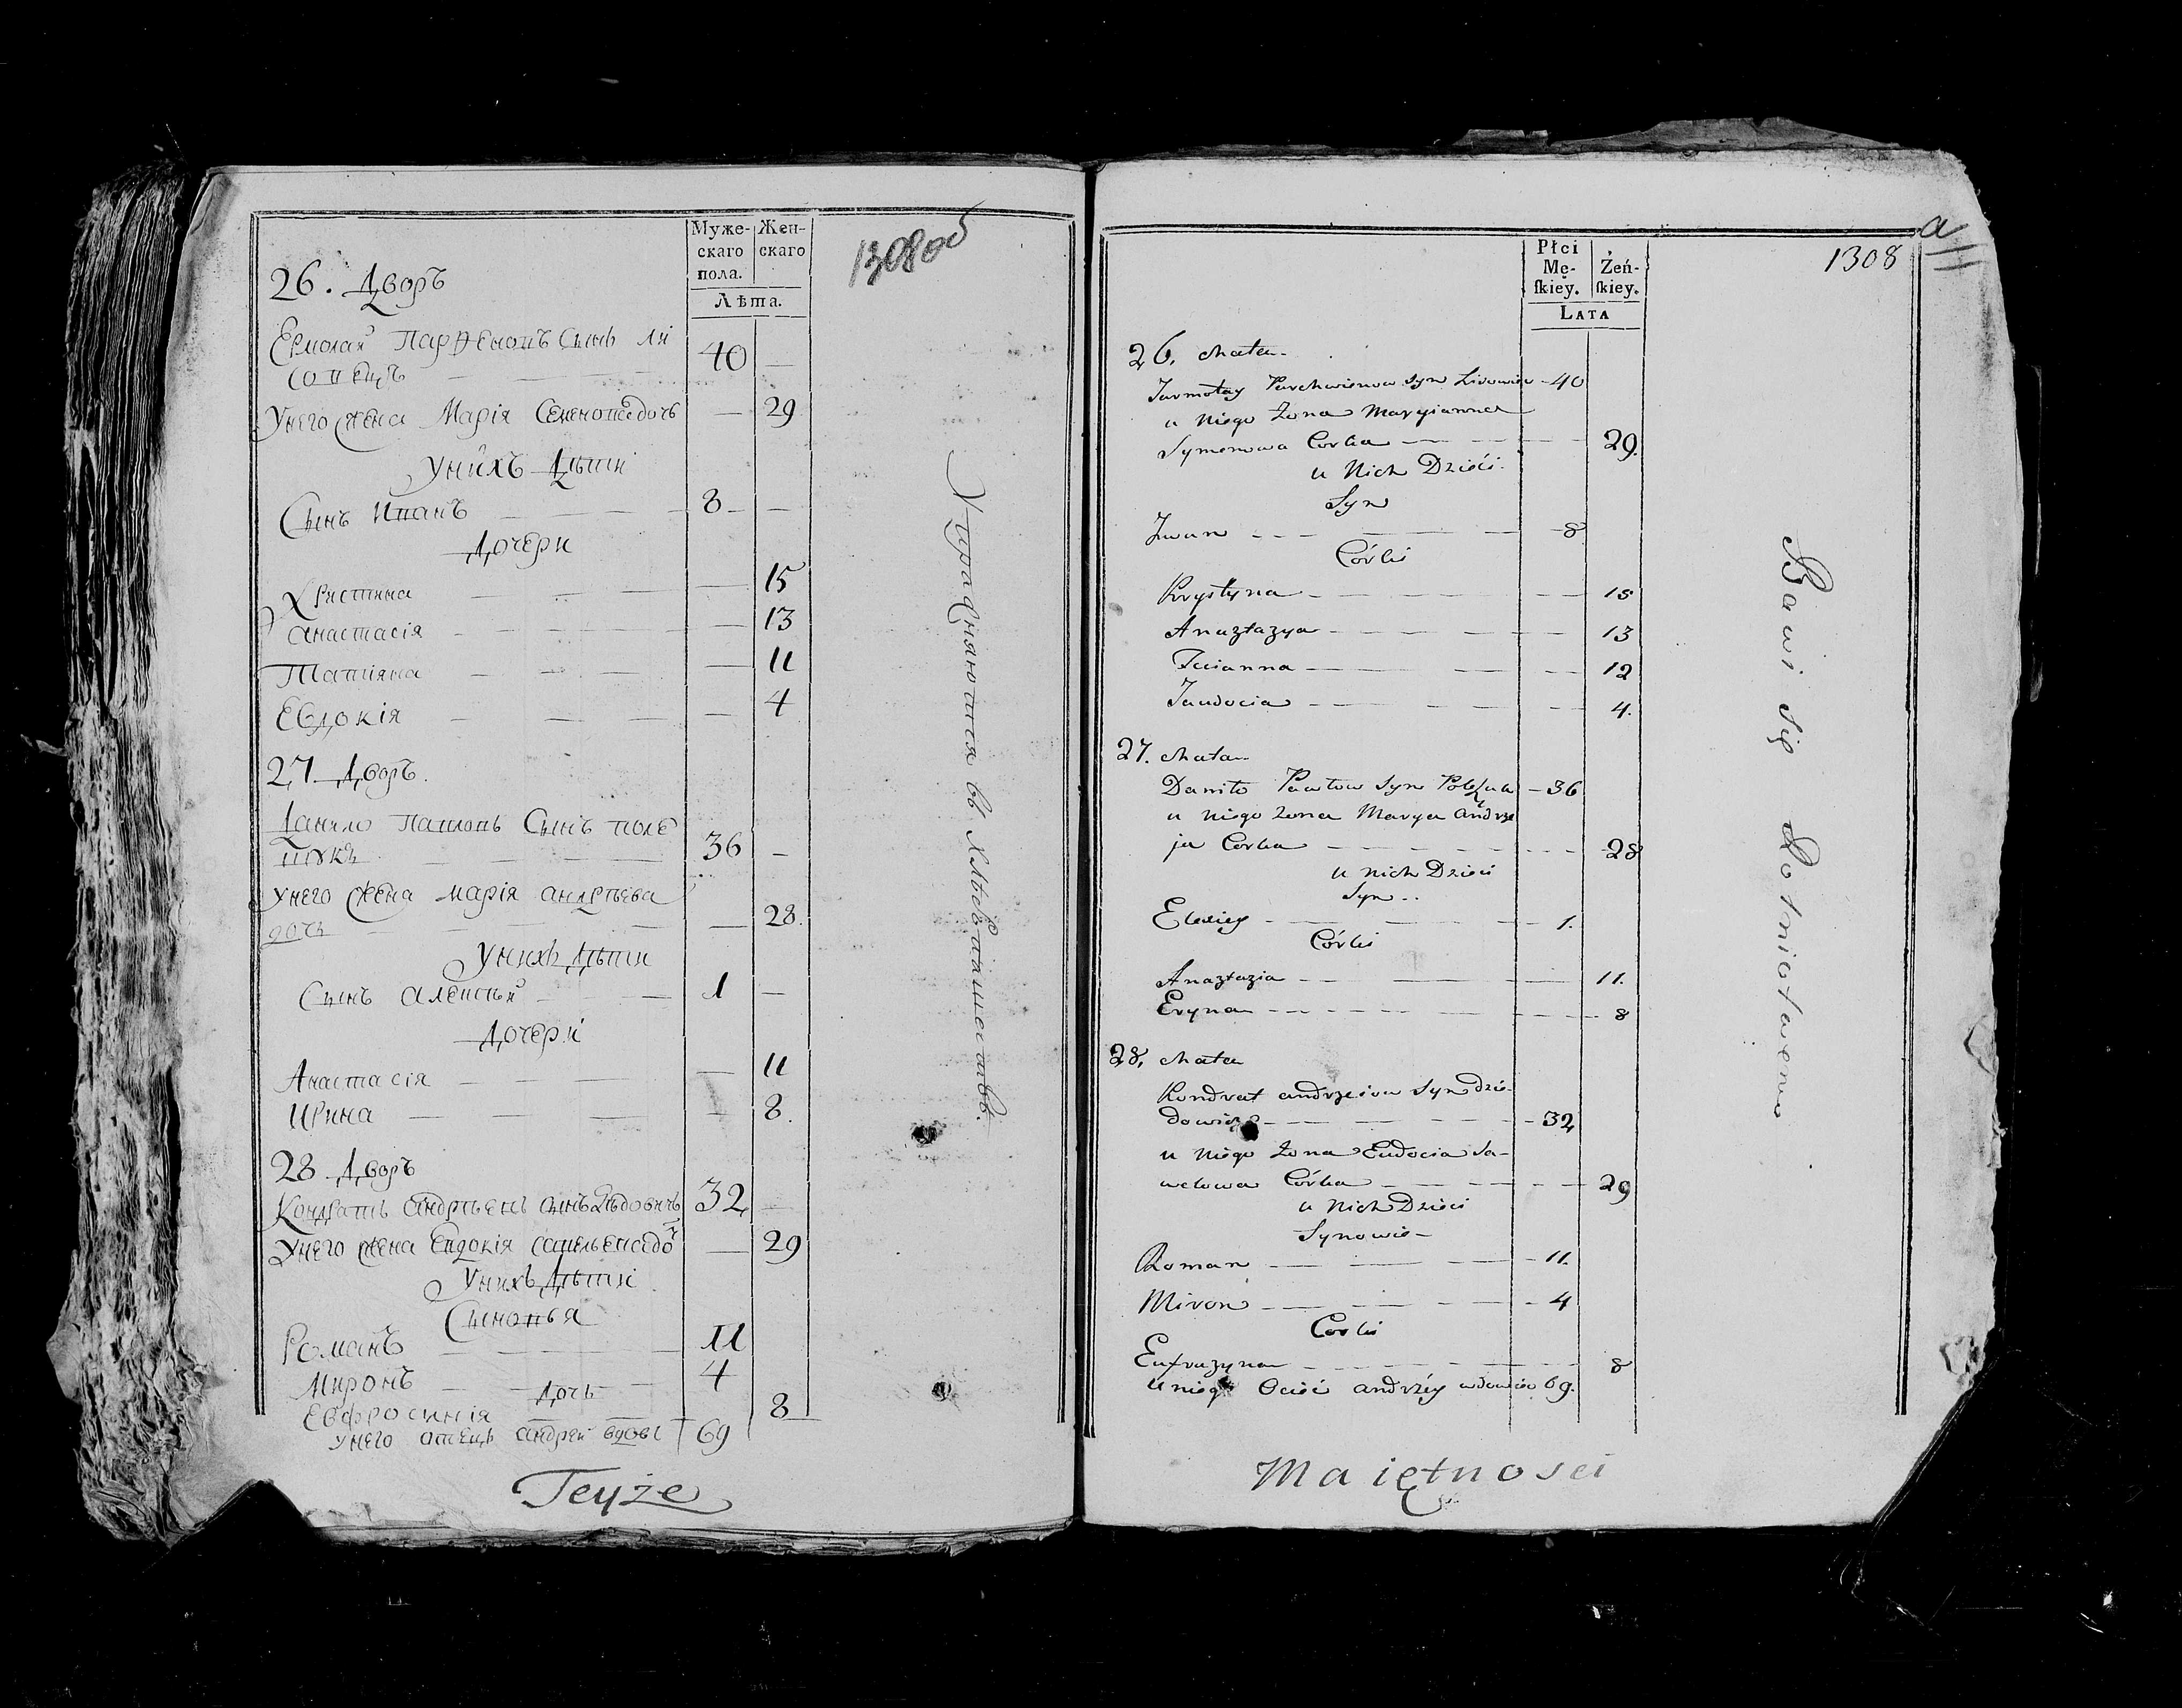 Муже-
скаго
пола.
Жен-
скаго
Лѣта.
1308 об
26. Дворъ
Ермолай Парѳеновъ Сынъ Ли
совецъ 40 —
Унего жена Марія Семеновадочь — 29
Унихъ Дѣти
Сынъ Иванъ 8 —
Дочери
Христина — 15
Анастасія — 13
Татіяна — 11
Евдокія — 4
27. Дворъ.
Данило Павловъ Сынъ поле
щукъ 36 —
Унего жена Марія андрѣева
дочь — 28.
Унихъ Дѣти
Сынъ алексѣй 1 —
Дочери
Анастасія — 11
Ирина — 8.
28 Дворъ
Кондратъ андрѣевъ сынъ дѣдовичъ 32
Унего жена Евдокія савельевадоч — 29
Унихъ Дѣти
Сыновья
Романъ 11
Миронъ 4
Дочь
Евфросинія 8
Унего отецъ андрей вдовъ 69
Упражняются въ хлѣбопашествѣ.
Teyże
Płci
Mę-
ſkiey.
Żeń-
ſkiey.
LATA
a
1308
26. chata
Jarmołay Parchwienow Syn Lisowiec 40
u Niego Żona Maryianna
Symonowa Corka 29.
u Nich Dzieći
Syn
Iwan 8
Córki
Krystyna 15
Anaztazya 13
Tacianna 12
Jewdocia 4.
27. chata
Daniło Pawłow Syn Poleszuk 36
u niego żona Marya andrze
ja Corka 28
u nich Dzieci
Syn
Elexiey 1.
Córki
Anaztazia 11.
Eryna 8
28. chata
Kondrat andrzeiow Syn dzie-
dowicz 32
u Niego Żona Eudocia Sa-
welowa Córka 29
u Nich Dzieci
Synowie
Roman 11.
Miron 4
Corki
Eufruzyna 8
u niego Ociec andrzéy wdowiec 69.
Bawi się Rolnictwem
Maiętnosci